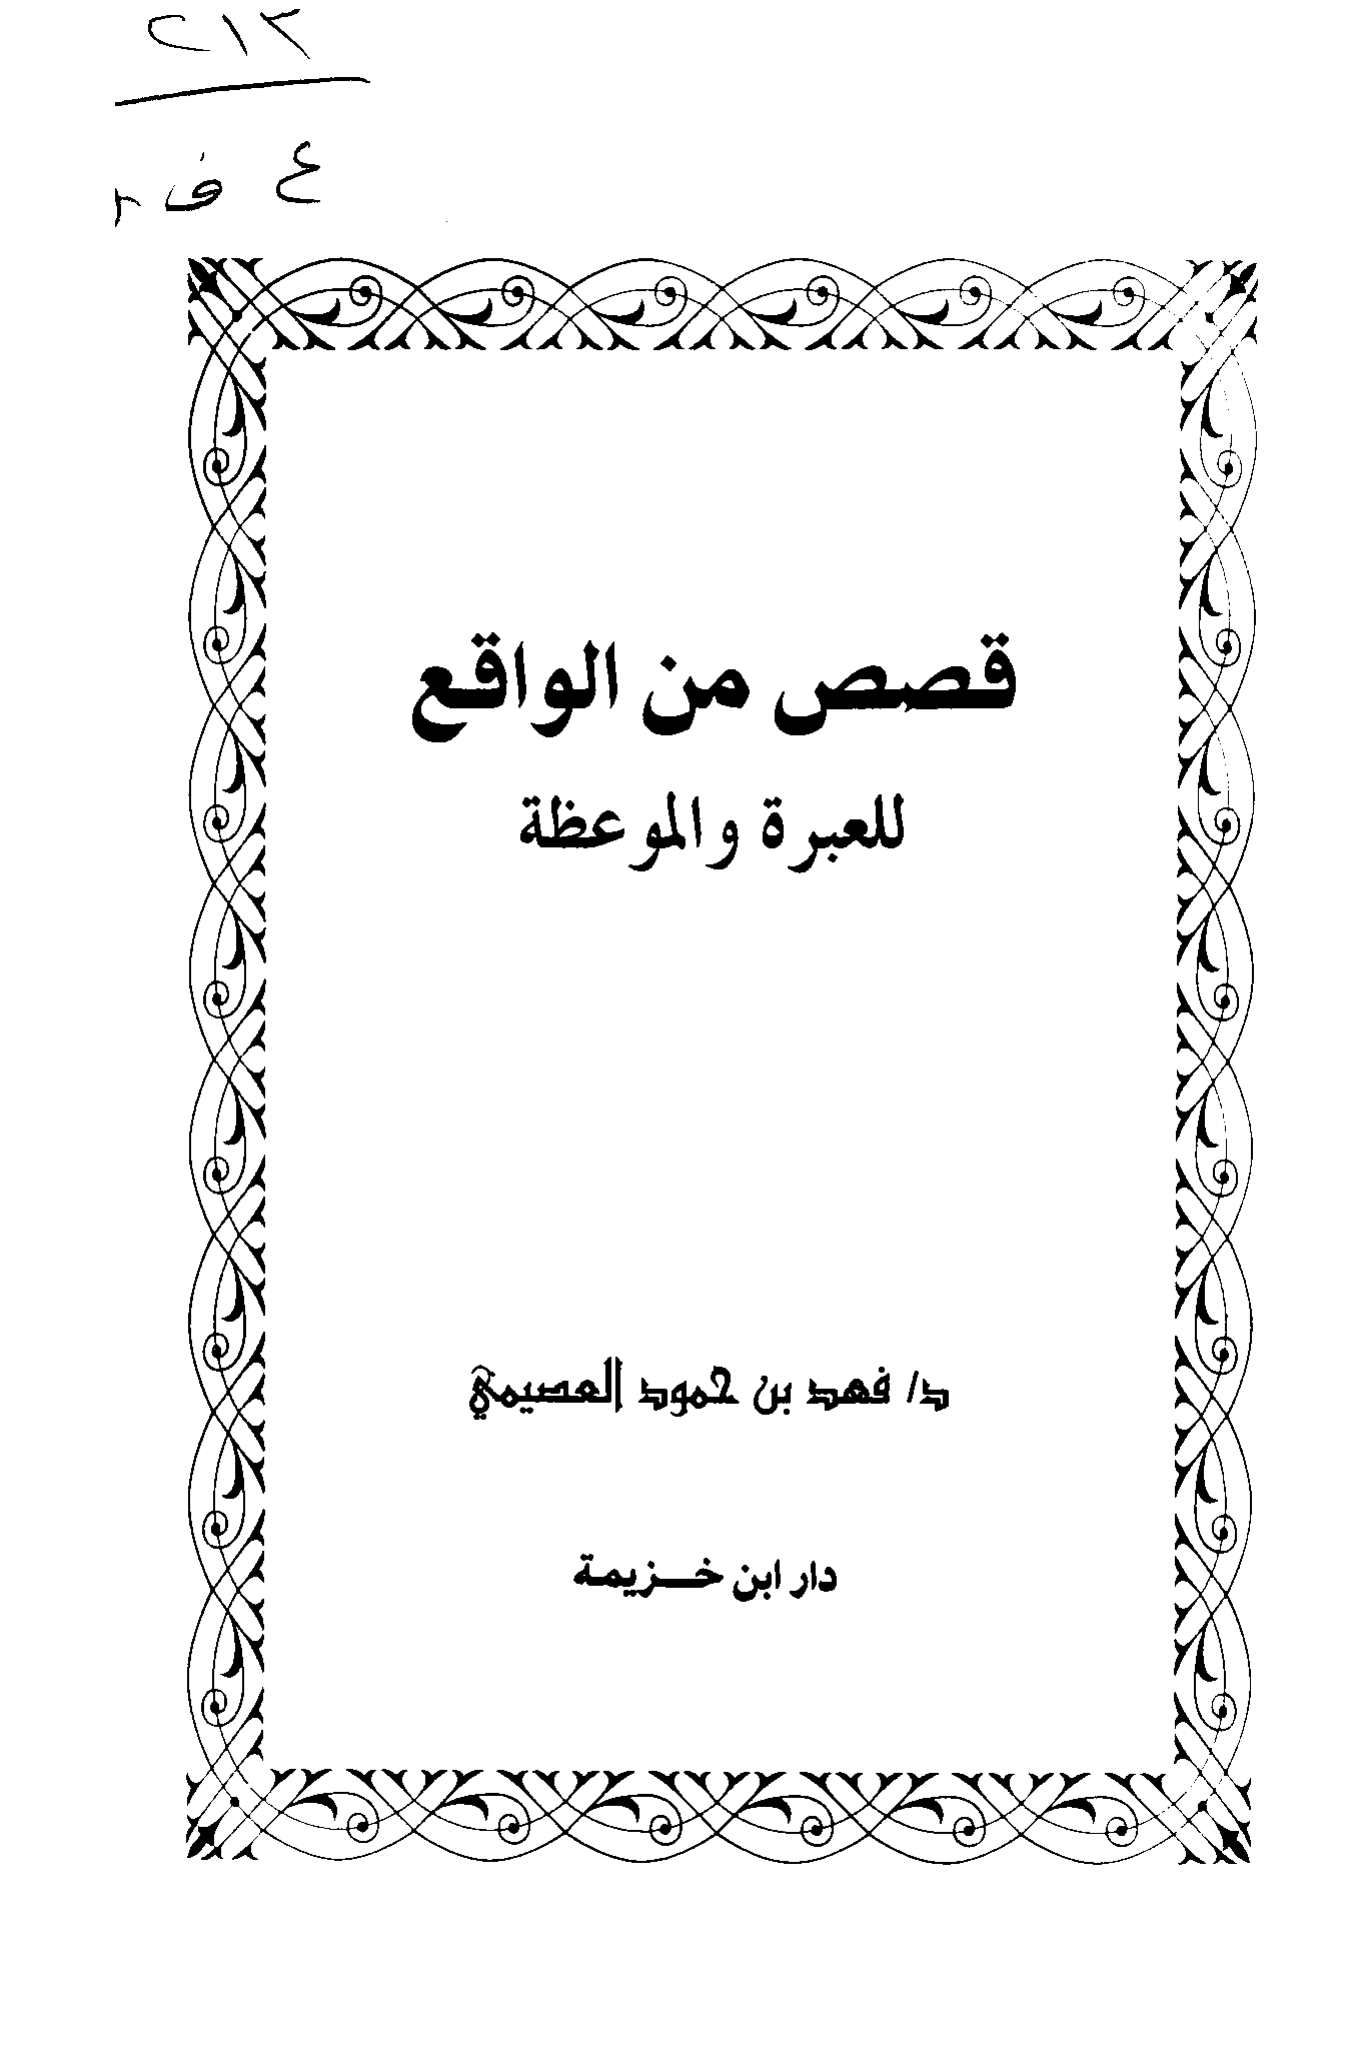 ٢١٣
ع ف
قصص من الواقع
للعبرة والموعظة
د/ فهد بن حمود العصيمي
دار ابن خزيمة